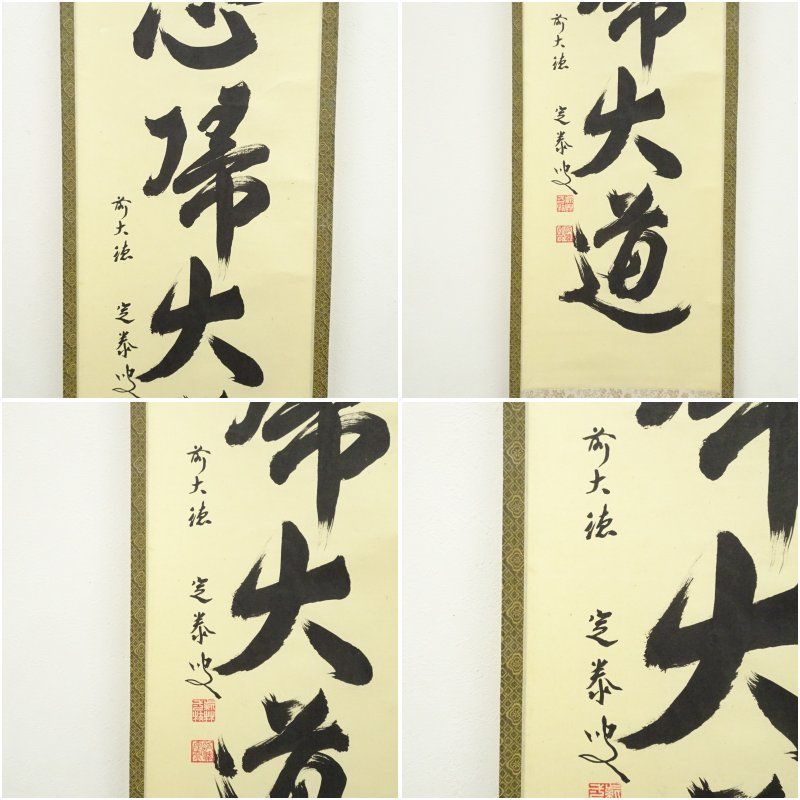 帰大
前大徳
定泰叟
帰大道
前大徳
定泰叟
帰大道
前大徳
定泰叟
帰大道
前大徳
定泰叟